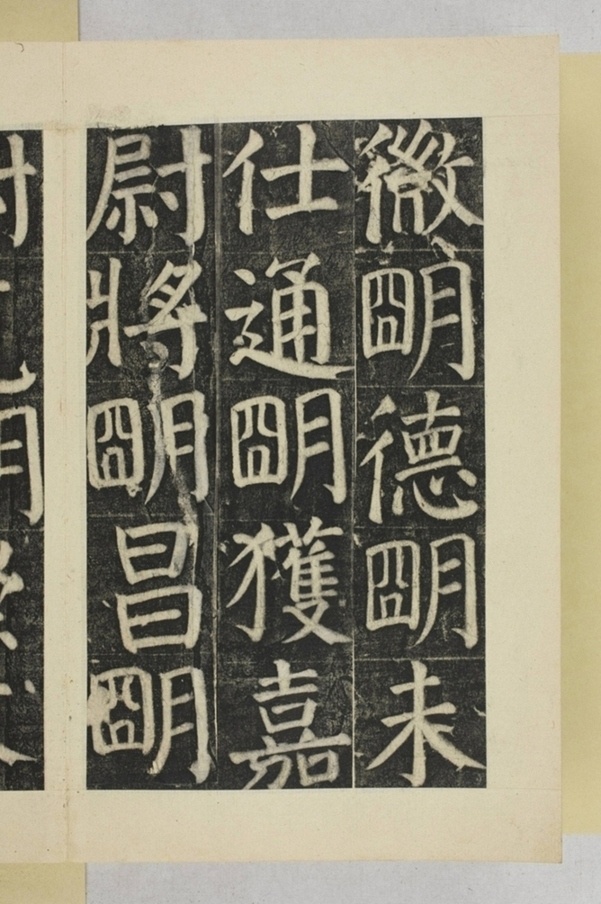 微朙德朙未
仕通朙獲嘉
尉將朙昌朙